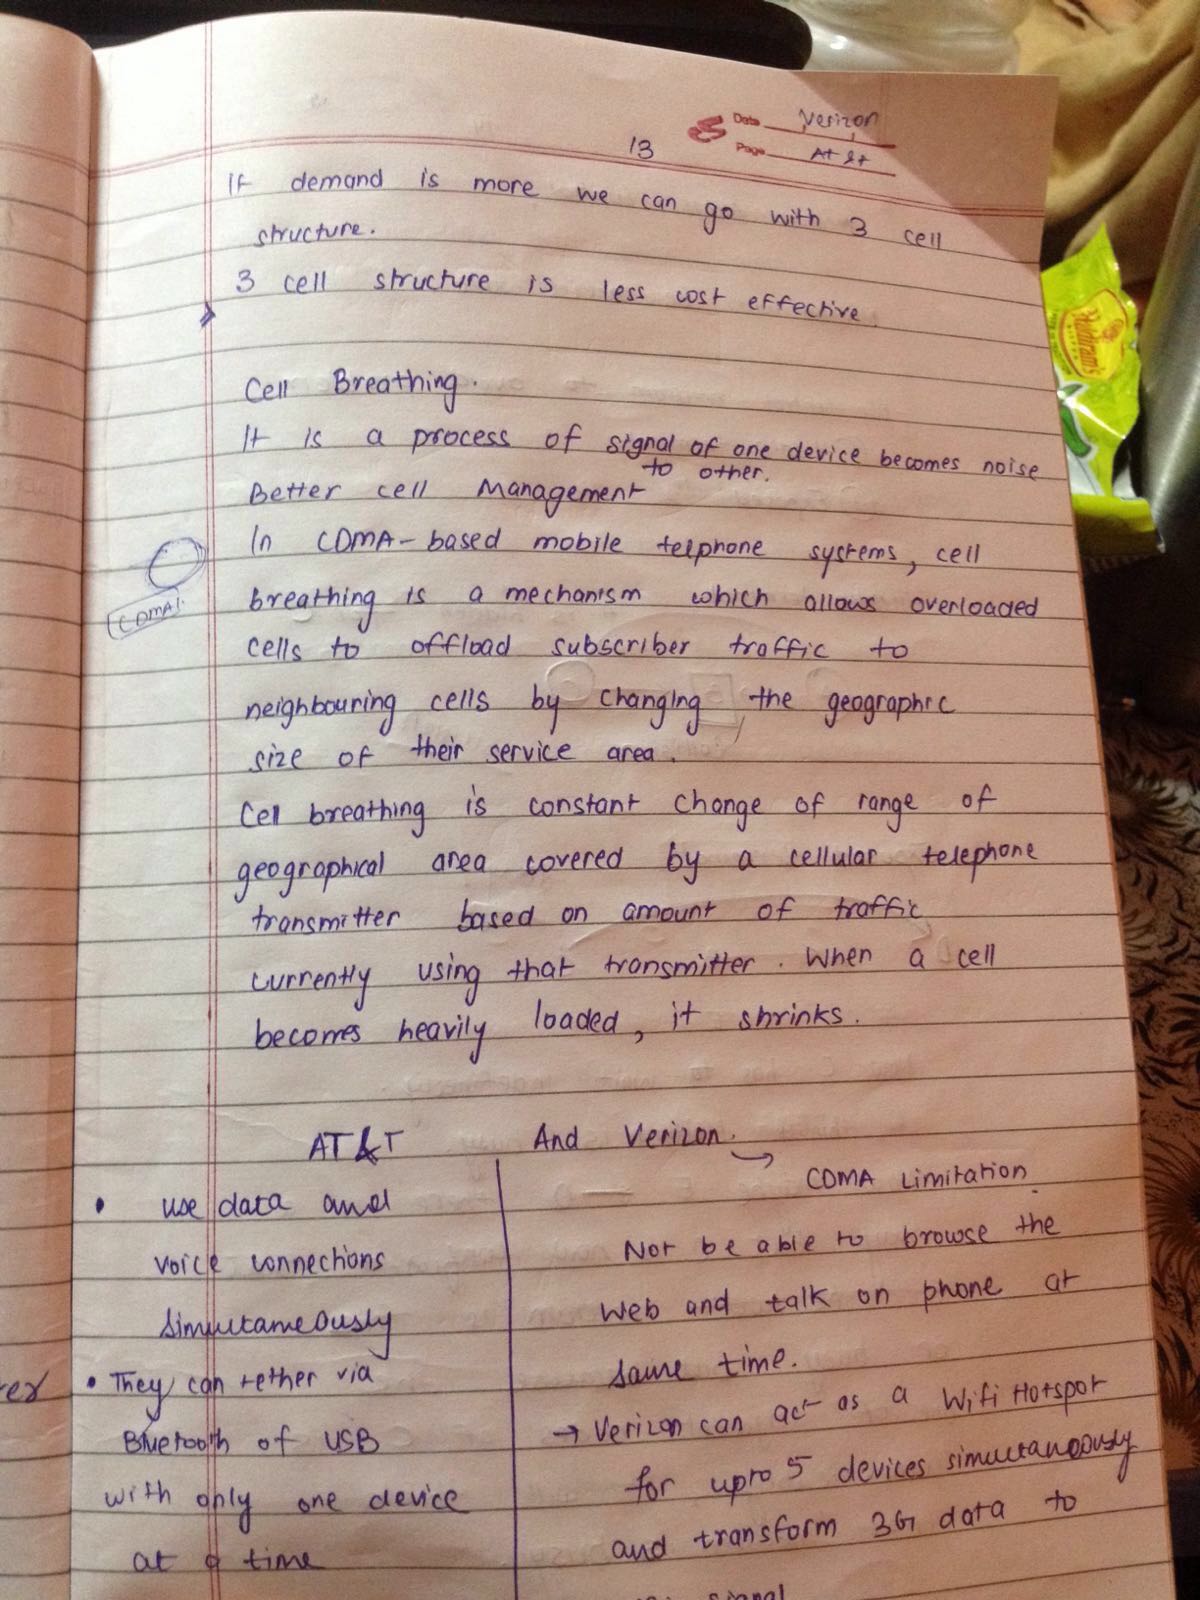 Date Verizon
Page At &t
13
If demand is more we can go with 3 cell
structure.
3 cell structure is less cost effective.
Cell Breathing.
It is a process of signal of one device becomes noise
to other.
Better cell Management
In CDMA-based mobile telphone systems, cell
CDMA
breathing is a mechanism which allows overloaded
cells to offload subscriber traffic to
neighbouring cells by changing the geographic
size of their service area.
Cel breathing is constant change of range of
geographical area covered by a cellular telephone
transmitter based on amount of traffic
currently using that transmitter. When a cell
becomes heavily loaded, it shrinks.
AT&T And Verizon.
• use data and
voice connections
simultaneously
• They can tether via
Bluetooth of USB
with only one device
at a time
→ CDMA Limitation.
Not be able to browse the
Web and talk on phone at
same time.
→ Verizon can act as a Wifi Hotspot
for upto 5 devices simultaneously
and transform 3G data to
signal
Haldiram's